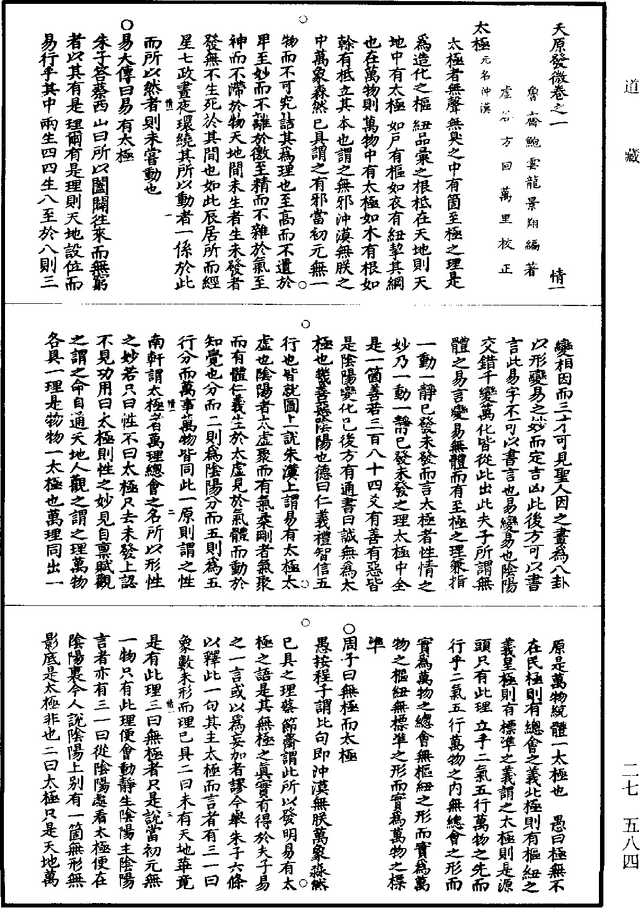 道藏
天原發微卷之一 情一
魯齋鮑雲龍景翔編著
虛谷方回萬里校正
太極 元名沖漠
太極者無聲無臭之中有箇至極之理是
為造化之樞紐品彙之根柢在天地則天
地中有太極如戶有樞如衣有紐挈其綱
也在萬物則萬物中有太極如木有根如
榦有柢立其本也謂之無邪沖漠無朕之
中萬象森然已具謂之有邪當初元無一
物而不可究詰其為理也至高而不遺於
卑至妙而不離於微至精而不雜於氣至
神而不滯於物天地間未生者生未發者
發無不生死於其間也如此辰居所而經
星七政晝夜環繞其所以動者一係於此
而所以然者則未嘗動也
〇易大傳曰易有太極
朱子答蔡西山曰所以闔闢往來而無窮
者以其有是理爾有是理則天地設位而
易行乎其中兩生四四生八至於八則三
變相因而三才可見聖人因之畫為八卦
以形變易之妙而定吉凶此後方可以書
言此易字不可以書言也易變易也陰陽
交錯千變萬化皆從此出此夫子所謂無
體之易言變易無體而有至極之理兼指
一動一靜已發未發而言太極者性情之
妙乃一動一靜已發未發之理太極中全
是一箇善若三百八十四爻有善有惡皆
是陰陽變化已後方有通書曰誠無為太
極也幾善惡陰陽也德曰仁義禮智信五
行也皆就圖上說朱漢上謂易有太極太
虛也陰陽者太虛聚而有氣柔剛者氣聚
而有體仁義生於太虛見於氣體而動於
知覺也分而二則為陰陽分而五則為五
行分而萬事萬物皆同此一原則謂之性
南軒謂太極者萬理總會之名所以形性
之妙若只曰性不曰太極只去未發上認
不見功用曰太極則性之妙見自稟賦觀
之謂之命自通天地人觀之謂之理萬物
各具一理是物物一太極也萬理同出一
原是萬物統體一太極也 愚曰極無不
在民極則有總會之義北極則有樞紐之
義皇極則有標準之義謂之太極則是源
頭只有此理立乎二氣五行萬物之先而
行乎二氣五行萬物之內無總會之形而
實為萬物之總會無樞紐之形而實為萬
物之樞紐無標準之形而實為萬物之標
準
〇周子曰無極而太極
愚按程子謂此句即沖漠無朕萬象森然
已具之理蔡節齋謂此所以發明易有太
極之語是其無極之真實有得於夫子易
之一言或以為妄加者謬今舉朱子六條
以釋此一句其主太極而言者有三一曰
象數未形而理已具二曰未有天地畢竟
是有此理三曰無極者只是說當初元無
一物只有此理便會動靜生陰陽主陰陽
言者亦有三一曰從陰陽處看太極便在
陰陽裏令人說陰陽上別有一箇無形無
影底是太極非也二曰太極只是天地萬
二七 五八四